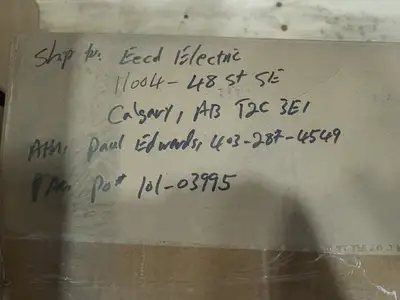 Ship to: Eecd Electric
11004-48 St SE
Calgary, AB T2C 3E1
Attn, Paul Edwards, 403-287-4549
PO# 101-03995